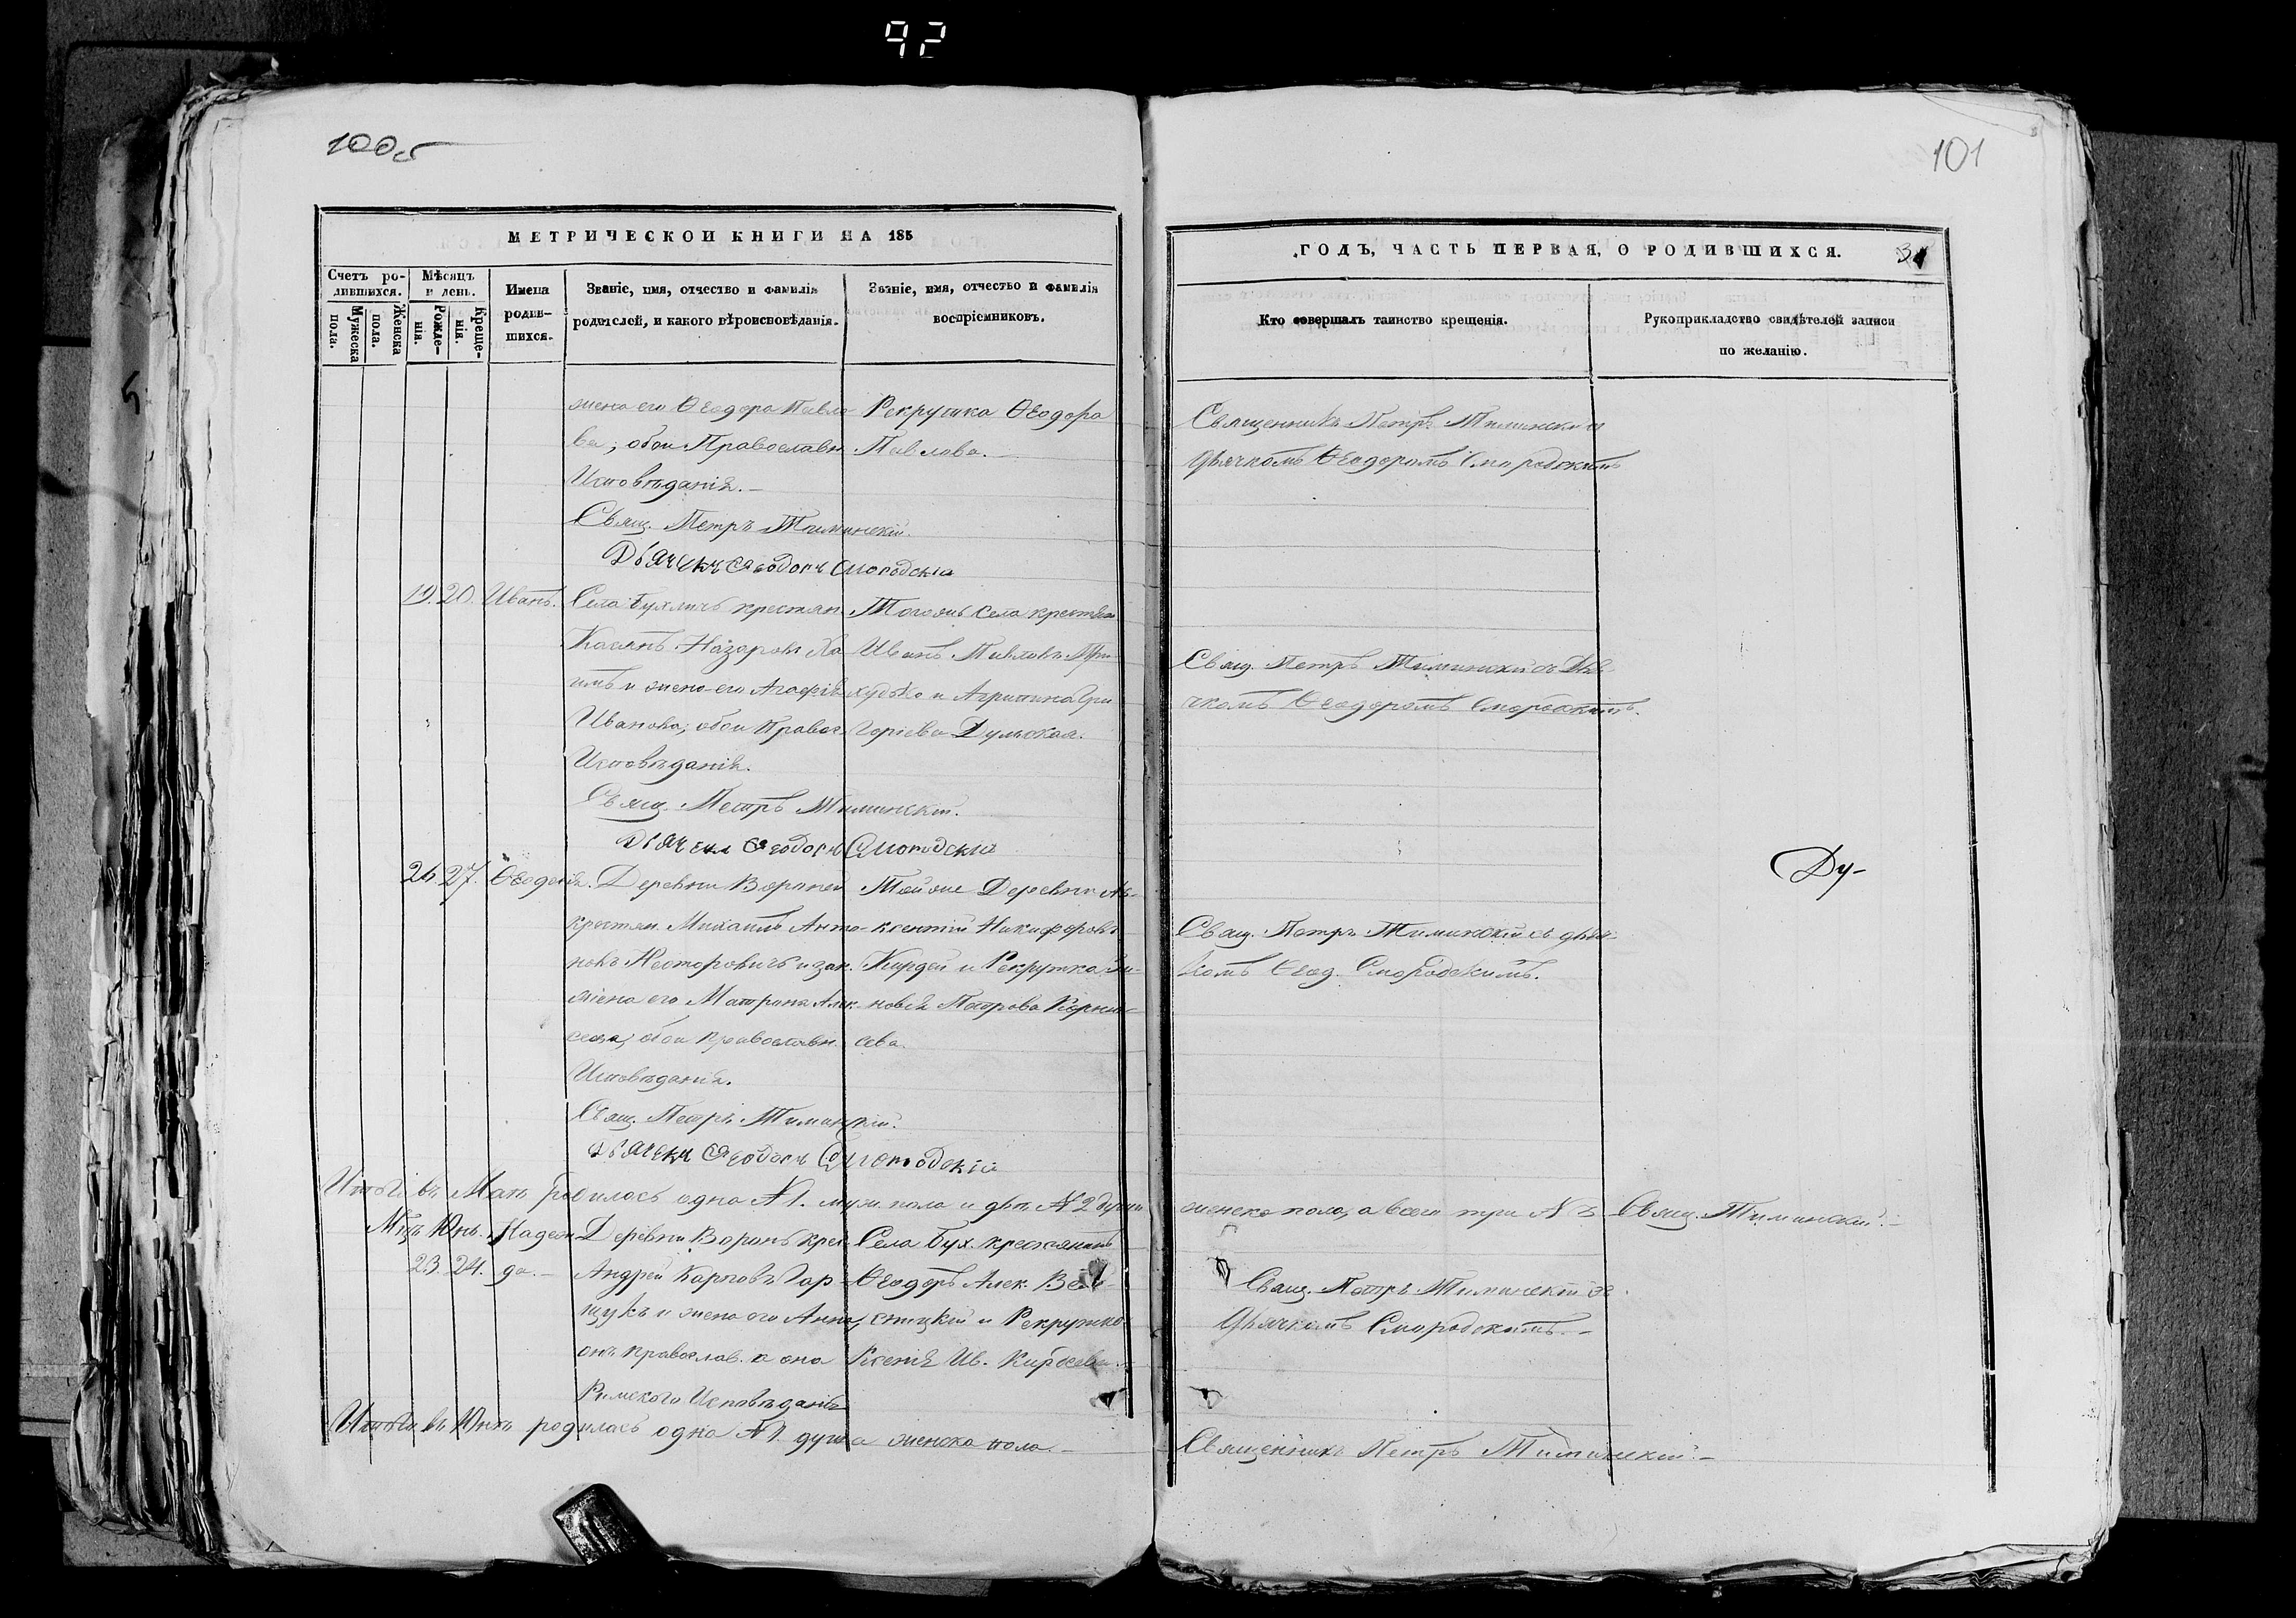 92
100об
101
МЕТРИЧЕСКОЙ КНИГИ НА 185
Счетъ ро-
дившихся.
Мужеска
пола.
Женска
пола.
Мѣсяцъ
и день.
Рожде-
нія.
Креще-
нія.
Имена
родив-
шихся.
Званіе, имя, отчество и фамилія
родителей, и какого вѣроисповѣданія.
Званіе, имя, отчество и фамилія
воспріемниковъ.
жена его Ѳеодора Павло
ва; обои Православн
Исповѣданія.
Свящ. Петръ Тиминскій.
Дьячекъ Ѳеодоръ Смородскій
Рекрутка Ѳеодора
Павлова.
19. 20. Иванъ.
Села Бухличъ крестян.
Касянъ Назаровъ
и жена его Агафія
Иванова; обои Правос.
Исповѣданія.
Свящ. Петръ Тиминскій.
Дьячекъ Ѳеодоръ Смородскій
Тогожъ Села крестян
Иванъ Павловъ
и Агрипина Гри
горіева Дульская.
26. 27. Ѳеодосія.
Деревни Вороней
крестян. Михаилъ Анто-
новъ Несторовичъ и зак.
жена его Матрона Алек-
сеева; обои Православн.
Исповѣданія.
Свящ. Петръ Тиминскій.
Дьячекъ Ѳеодоръ Смородскій
Той же Деревни Ав-
ксентій Никифоровъ
Кирдей и Рекрутка Зи-
новія Петрова Корни-
сева.
Итого въ Маѣ родилось одна №1. муж. пола и двѣ №2 души
Мцъ Юнь.
23. 24.
Надеж
да.
Деревни Воронь крес.
Андрей Карповъ Гор-
щукъ и жена его Анна,
онъ православ. а она
Римского Исповѣданія
Села Бух. крестянинъ
Ѳеодоръ Алек.
и Рекрутка
Ксенія Ив. Кирдеева.
Итого въ Юнѣ родилась одна №1. душа женска пола.
ГОДЪ, ЧАСТЬ ПЕРВАЯ, О РОДИВШИХСЯ.
Кто совершалъ таинство крещенія.
Рукоприкладство свидѣтелей записи
по желанію.
Священникъ Петръ Тиминскій съ
дьячкомъ Ѳеодоромъ Смородскимъ
Свящ. Петръ Тиминскій съ Дья-
чкомъ Ѳеодоромъ Смородскимъ.
Ду-
Свящ. Петръ Тиминскій съ дьяч-
комъ Ѳеод. Смородскимъ.
женска пола, а всего три №3. Свящ. Тиминскій.
Свящ. Петръ Тиминскій со
дьячкомъ Смородскимъ.
Священникъ Петръ Тиминскій.